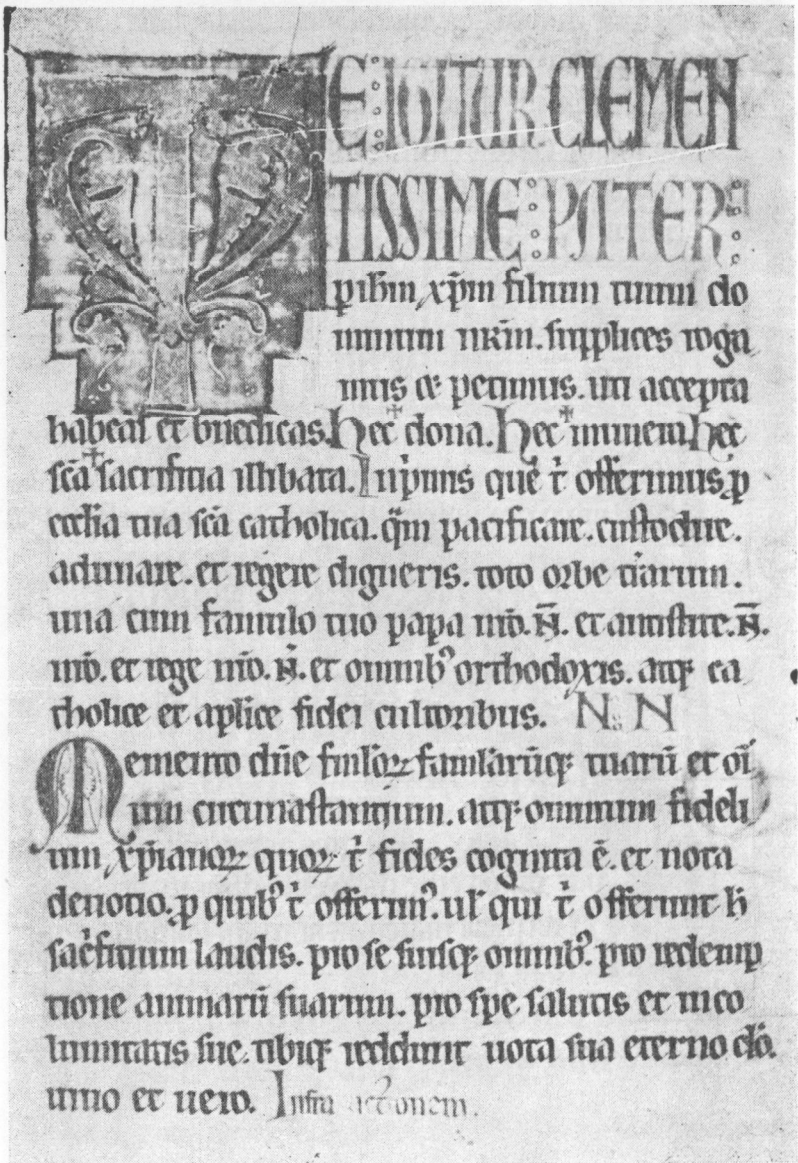 TE IGITUR CLEMEN
TISSIME PATER
p ihm xpm filium tuum do
minum nrm. supplices roga
mus & petimus. uti accepta
habeas et bnedicas. hec dona. hec munera hec
scā sacrificia illibata. Inpmis que t offerimus p
ecclia tua scā catholica. qm pacificare. custodire.
adunare. et regere digneris. toto orbe trarum.
una cum famulo tuo papa nro. N̄. et antistite. N̄.
nro. et rege nro. N̄. et omnibꝰ orthodoxis. atqꝫ ca
tholice et aplice fidei cultoribus. N N
Memento dn̄e fmloꝝ famlarūqꝫ tuarū et oī
um circumastantium. atqꝫ omnium fideli
um xpianoꝝ quoꝝ t fides cognita ē. et nota
deuotio. p quibꝰ t offerimꝰ. ul qui t offerunt h
sacficium laudis. pro se suisqꝫ omnibꝰ. pro redemp
tione animarū suarum. pro spe salutis et inco
lumitatis sue. tibiqꝫ reddunt uota sua eterno do.
uiuo et uero. Infra actionem.